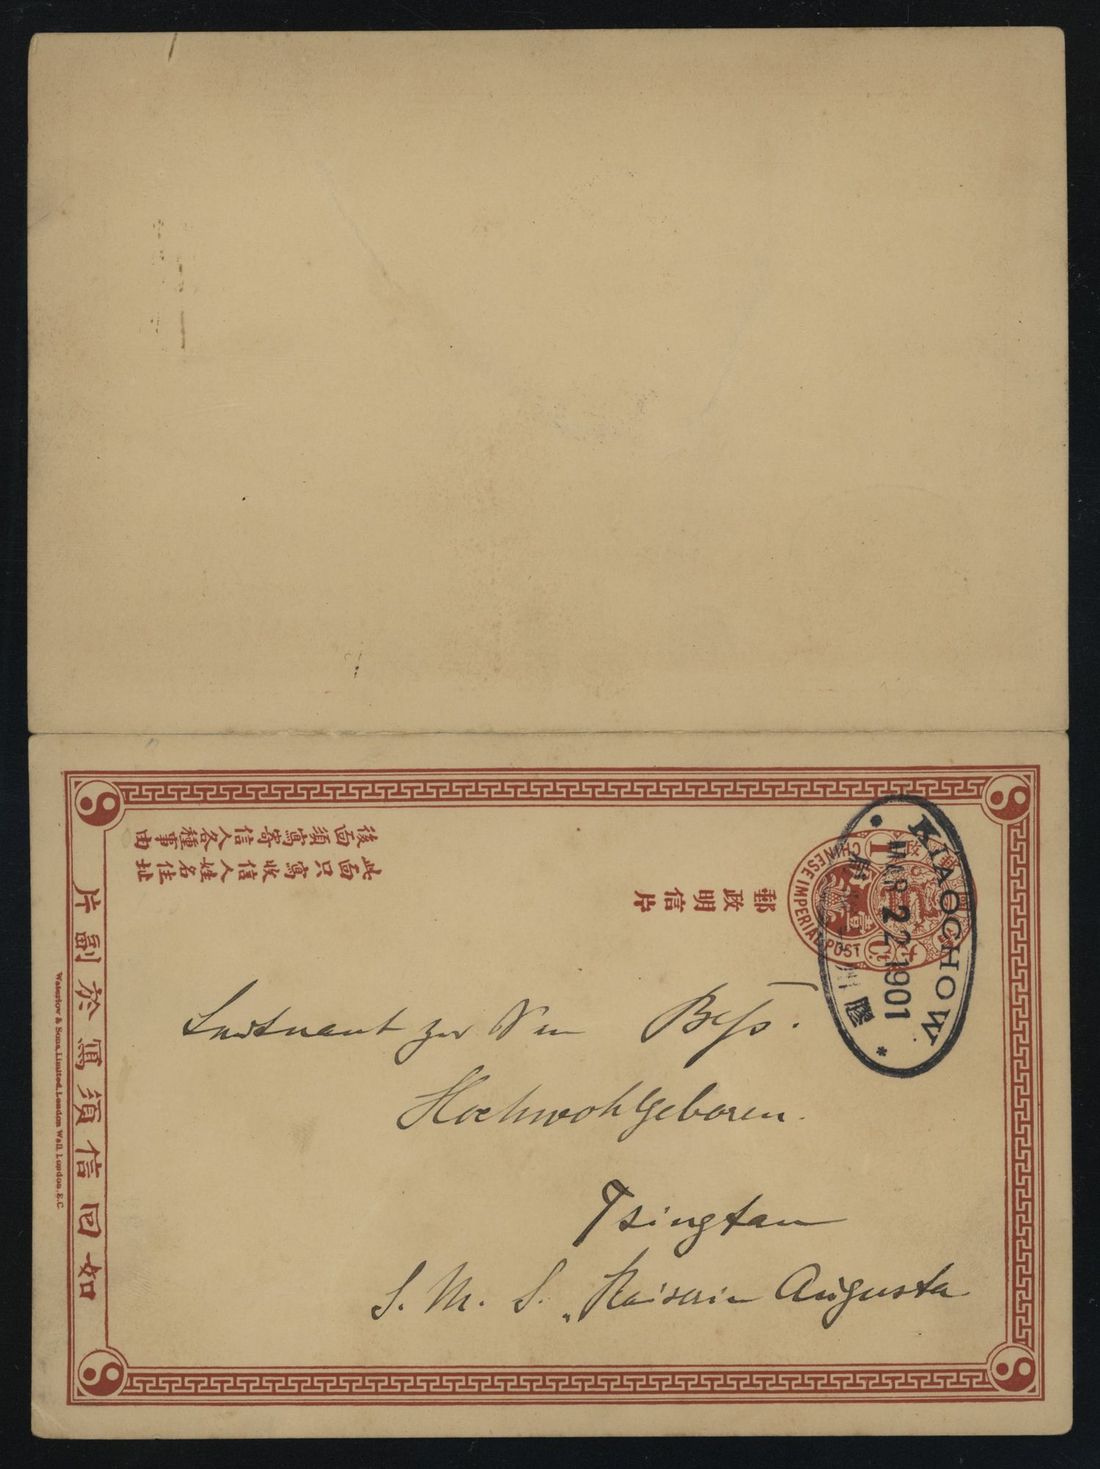 郵政明信片
此面只寫收信人姓名住址
後面須寫寄信人各種事由
如回信須寫於副片
CHINESE IMPERIAL POST
KIAOCHOW
MAR 22 1901
膠州
Leutnant zur See Bess.
Hochwohlgeboren.
Tsingtau
S. M. S. „Kaiserin Augusta
Waterlow & Sons, Limited, London Wall, London, E.C.